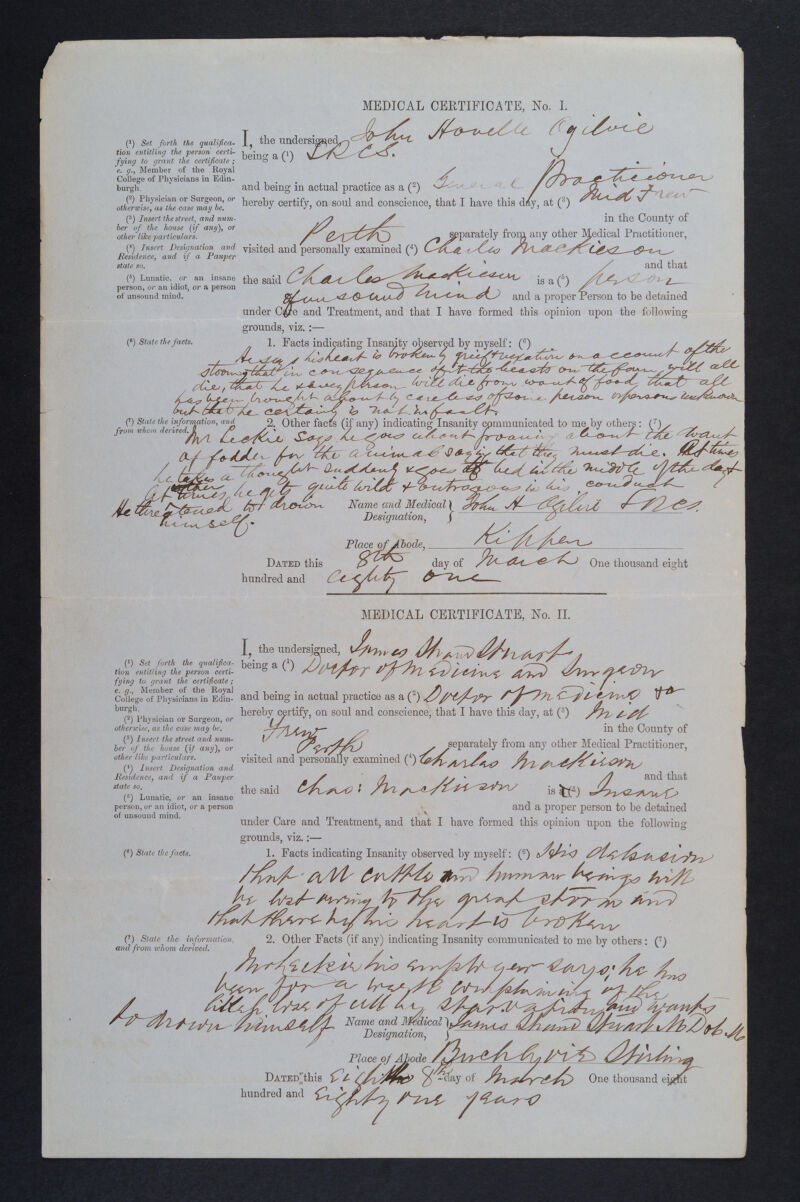 MEDICAL CERTIFICATE, No. I.
(1) Set forth the qualifica-
tion entitling the person certi-
fying to grant the certificate;
e. g., Member of the Royal
College of Physicians in Edin-
burgh.
(2) Physician or Surgeon, or
otherwise, as the case may be.
(3) Insert the street, and num-
ber of the house (if any), or
other like particulars.
(4) Insert Designation and
Residence, and if a Pauper
state so.
(5) Lunatic, or an insane
person, or an idiot, or a person
of unsound mind.
I, the undersigned, John Ogilvie
being a (1)
and being in actual practice as a (2) General Practicioner
hereby certify, on soul and conscience, that I have this day, at (3) Mid Frew
in the County of
Perth separately from any other Medical Practitioner,
visited and personally examined (4) Charles Mackieson
and that
the said Charles Mackieson is a (5) person
of unsound mind and a proper Person to be detained
under Care and Treatment, and that I have formed this opinion upon the following
grounds, viz. :—
(6) State the facts.
1. Facts indicating Insanity observed by myself: (6)
He says his heart is broken by grief & vexation on account of the
storm, that in consequence of it the beasts on the farm will all
die, that he & every person will die from want of food, that all
has been brought about by careless of some person or persons unknown
but that he certainly is not in fault.
(7) State the information, and
from whom derived.
2. Other facts (if any) indicating Insanity communicated to me by others: (7)
Mr Leckie says he goes about groaning about the want
of fodder for the animals saying that they must die. At times
he takes a thought suddenly & goes to bed in the middle of the day &
at other times he gets quite wild & outrageous in his conduct
He threatened to drown
himself.
Name and Medical
Designation,
John H Ogilvie
Place of Abode, Kippen
DATED this 8th day of March One thousand eight
hundred and eighty one
MEDICAL CERTIFICATE, No. II.
(1) Set forth the qualifica-
tion entitling the person certi-
fying to grant the certificate;
e. g., Member of the Royal
College of Physicians in Edin-
burgh.
(2) Physician or Surgeon, or
otherwise, as the case may be.
(3) Insert the street and num-
ber of the house (if any), or
other like particulars.
(4) Insert Designation and
Residence, and if a Pauper
state so.
(5) Lunatic, or an insane
person, or an idiot, or a person
of unsound mind.
I, the undersigned, James Shand Stuart
being a (1) Doctor of Medicine and Surgeon
and being in actual practice as a (2) Doctor of Medicine &c
hereby certify, on soul and conscience, that I have this day, at (3) Mid
Frew in the County of
Perth separately from any other Medical Practitioner,
visited and personally examined (4) Charles Mackieson
and that
the said Chas: Mackieson is (5) Insane
and a proper person to be detained
under Care and Treatment, and that I have formed this opinion upon the following
grounds, viz. :—
(6) State the facts.
1. Facts indicating Insanity observed by myself: (6) His delusion
that all cattle and human beings will
be lost owing to the great storm and
that thereby his heart is broken
(7) State the information,
and from whom derived.
2. Other Facts (if any) indicating Insanity communicated to me by others: (7)
Mr Leckie his employer says; he has
been for a week complaining of the
loss of all by starvation, and wants
to drown himself
Name and Medical
Designation,
James Shand Stuart M D
Place of Abode Buchlyvie Stirling
DATED this Eighth 8th day of March One thousand eight
hundred and Eighty one years